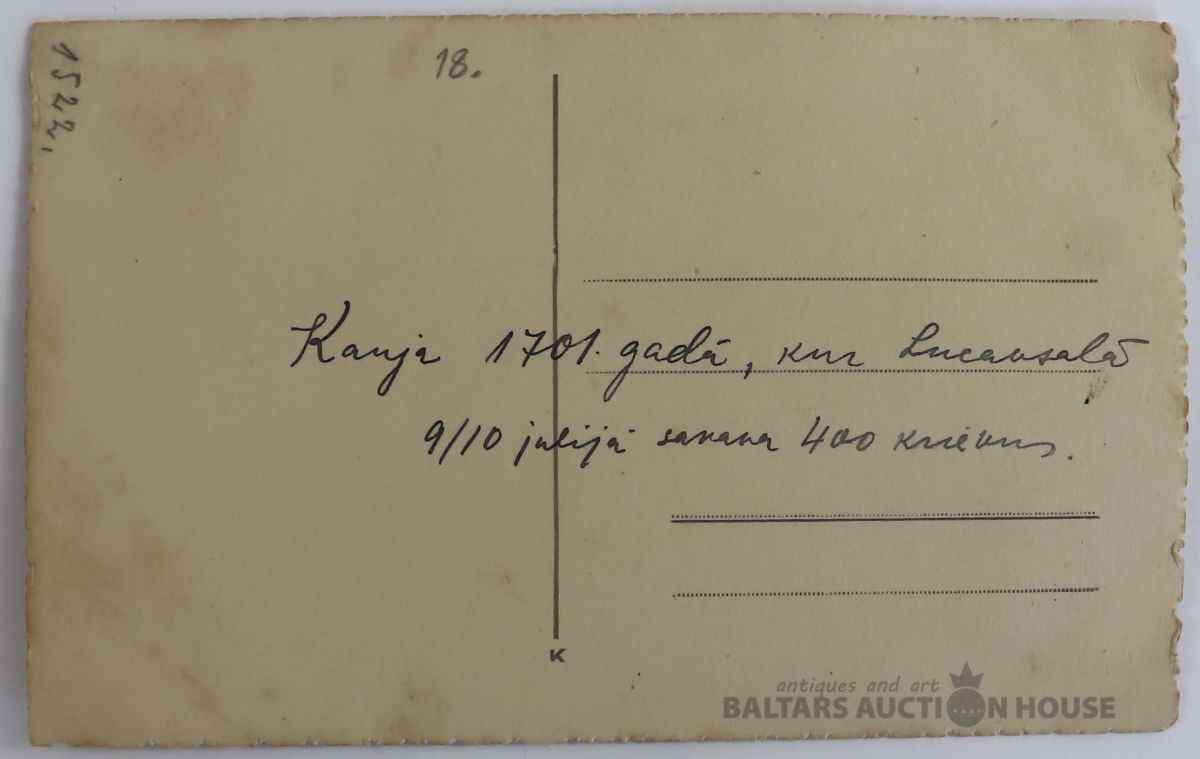 1522.
18.
Kauja 1701. gadā, kur Lucavsalā
9/10 julijā sakava 400 krievus.
K
antiques and art
BALTARS AUCTION HOUSE